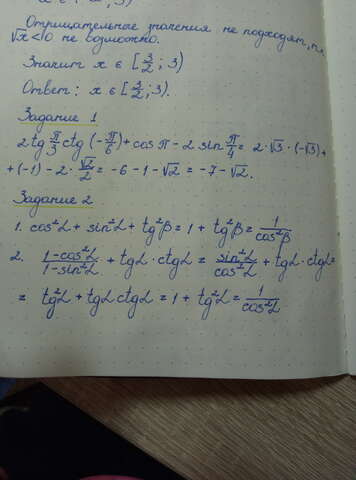 x ∈ [ ; 3)
Отрицательные значения не подходят, т.к.
√x<10 не возможно.
Значит x ∈ [3/2 ; 3)
Ответ: x ∈ [3/2 ; 3).
Задание 1
2tg π/3 ctg (-π/6) + cos π - 2 sin π/4 = 2·√3·(-√3)+
+(-1) - 2·√2/2 = -6 - 1 - √2 = -7 - √2.
Задание 2
1. cos²α + sin²α + tg²β = 1 + tg²β = 1/cos²β
2. 1-cos²α/1-sin²α + tgα·ctgα = sin²α/cos²α + tgα·ctgα=
= tg²α + tgα ctgα = 1 + tg²α = 1/cos²α